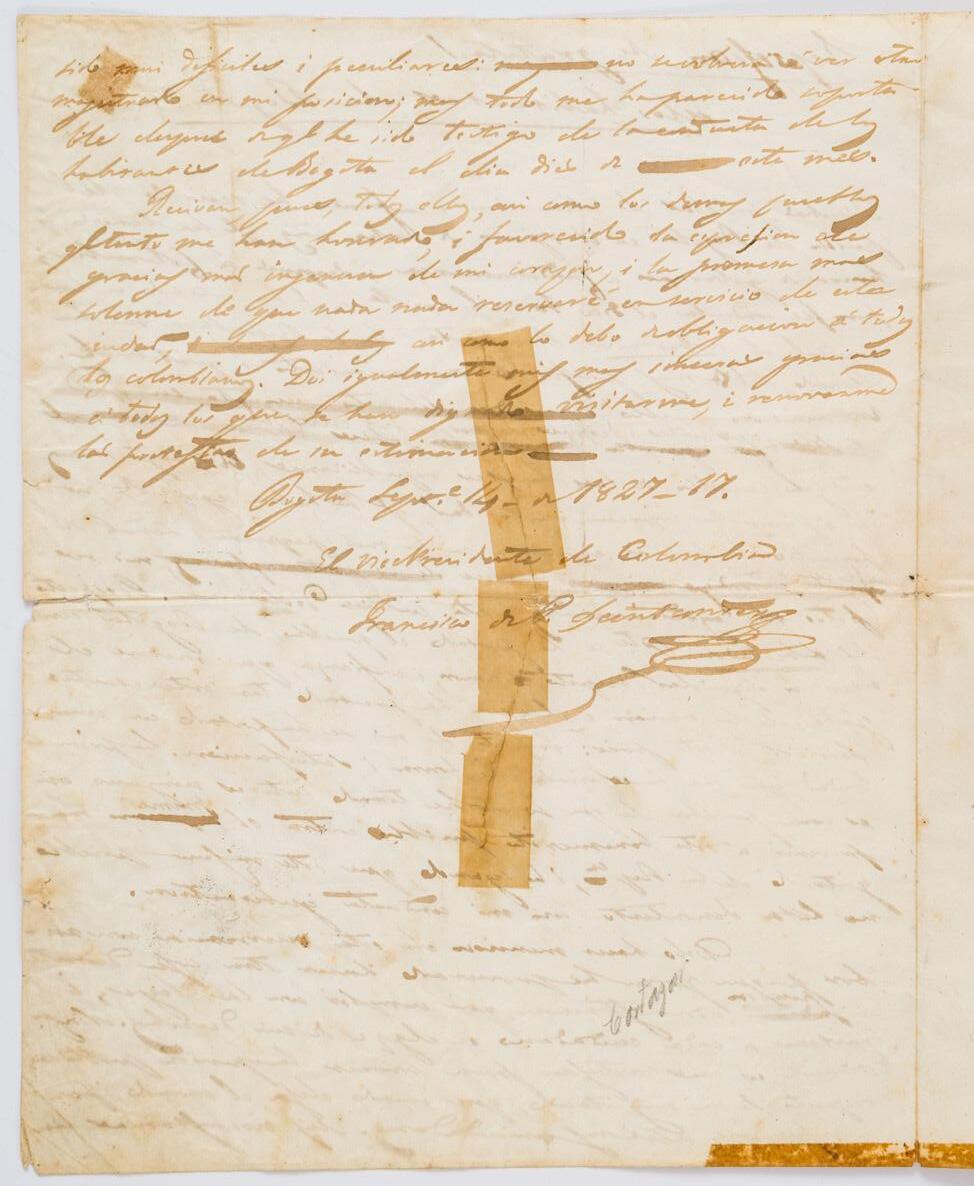 sido mui dificiles i peculiares: no se volverá á ver otro
magistrado en mi posicion; mas todo me ha parecido soporta-
ble despues q.e he sido testigo de la conducta de los
habitantes de Bogotá el dia diez de este mes.
Reciban, pues, todos ellos, asi como los demas pueblos
q.e tanto me han honrado, i favorecido la expresion de
gracias mas ingenua de mi corazon, i la promesa mas
solemne de que nada nada reservaré en servicio de esta
ciudad, asi como lo debo de obligacion á todos
los colombianos. Doi igualmente mis mas sinceras gracias
á todos los que se han dignado visitarme, i renovarme
las protestas de su estimacion
Bogotá Sep.e 14 de 1827-17.
El vicePresidente de Colombia
Francisco de P. Santander
Cortazar